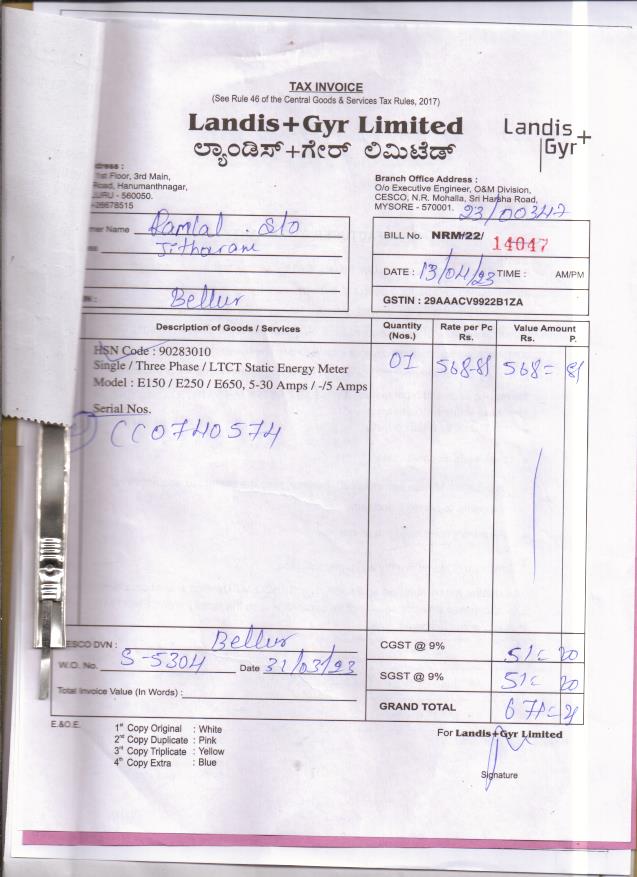 TAX INVOICE
(See Rule 46 of the Central Goods & Services Tax Rules, 2017)
Landis+Gyr Limited
ಲ್ಯಾಂಡಿಸ್+ಗೇರ್ ಲಿಮಿಟೆಡ್
Landis+
Gyr
1st Floor, 3rd Main,
Road, Hanumanthnagar,
560050.
26678515
Branch Office Address :
O/o Executive Engineer, O&M Division,
CESCO, N.R. Mohalla, Sri Harsha Road,
MYSORE - 570001.
23/00347
Name Ramlal S/o
Jitharam
Bellur
BILL No. NRM/22/ 14047
DATE : 13/04/23 TIME : AM/PM
GSTIN : 29AAACV9922B1ZA
Description of Goods / Services Quantity (Nos.) Rate per Pc Rs. Value Amount Rs. P.
HSN Code : 90283010
Single / Three Phase / LTCT Static Energy Meter
Model : E150 / E250 / E650, 5-30 Amps / -/5 Amps
01 568-81 568= 81
Serial Nos.
CC0740574
CESCO DVN : Bellur
W.O. No. S-5304 Date 31/03/23
Total Invoice Value (In Words) :
CGST @ 9% 51= 20
SGST @ 9% 51= 20
GRAND TOTAL 671= 21
E.&O.E.
1st Copy Original : White
2nd Copy Duplicate : Pink
3rd Copy Triplicate : Yellow
4th Copy Extra : Blue
For Landis+Gyr Limited
Signature